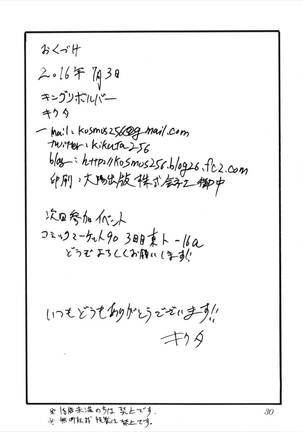 おくづけ
2016年7月3日
キングリボルバー
キクタ
mail: kosmos256@gmail.com
twitter: kikuta256
blog: http://kosmos256.blog26.fc2.com
印刷: 大陽出版株式会社 御中
次回参加イベント
コミックマーケット90 3日目東ト-16a
どうぞよろしくお願いします!!
いつもどうもありがとうございます!!
キクタ
※18歳未満の方は禁止です。
※無断転載・複製は禁止です。
30